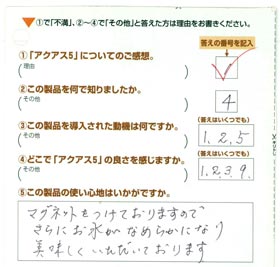 ①で「不満」、②~④で「その他」と答えた方は理由をお書きください。
答えの番号を記入
①「アクアス5」についてのご感想。
(理由 )
②この製品を何で知りましたか。
(その他 )
4
③この製品を導入された動機は何ですか。
(答えはいくつでも)
(その他 )
1.2.5
④どこで「アクアス5」の良さを感じますか。
(答えはいくつでも)
( )
1.2.3.9.
⑤この製品の使い心地はいかがですか。
マグネットをつけておりますので
さらにお水がなめらかになり
美味しくいただいております